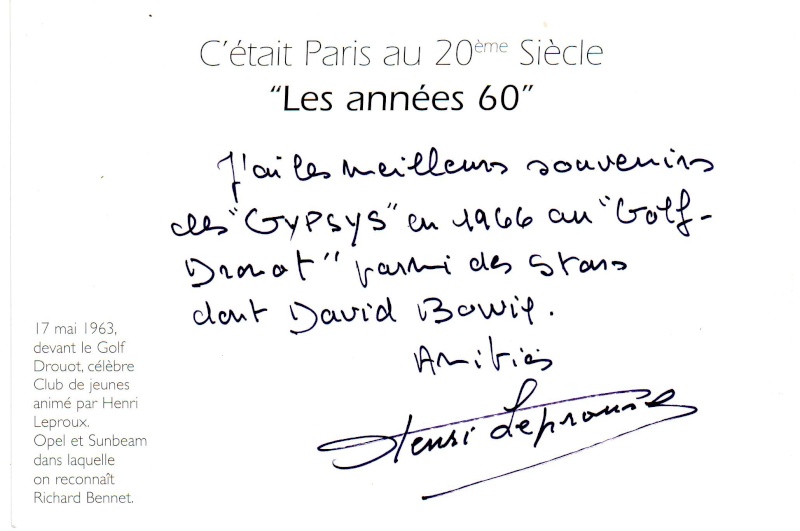 C'était Paris au 20ème Siècle
"Les années 60"
J'ai les meilleurs souvenirs
des "GYPSYS" en 1966 au "Golf-
Drouot" parmi des stars
dont David Bowie.
Amitiés
Henri Leproux
17 mai 1963,
devant le Golf
Drouot, célèbre
Club de jeunes
animé par Henri
Leproux.
Opel et Sunbeam
dans laquelle
on reconnaît
Richard Bennet.